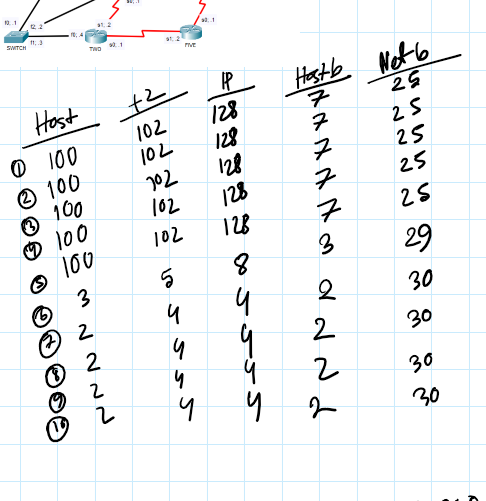 s0,.1
s1,.2
f0,.1
f2,.2
f1,.3
f0,.4
SWITCH
TWO
s0,.1
s1,.2
FIVE
Host +2 IP Hostb Netb
① 100 102 128 7 25
② 100 102 128 7 25
③ 100 102 128 7 25
④ 100 102 128 7 25
⑤ 100 102 128 7 25
⑥ 3 5 8 3 29
⑦ 2 4 4 2 30
⑧ 2 4 4 2 30
⑨ 2 4 4 2 30
⑩ 2 4 4 2 30